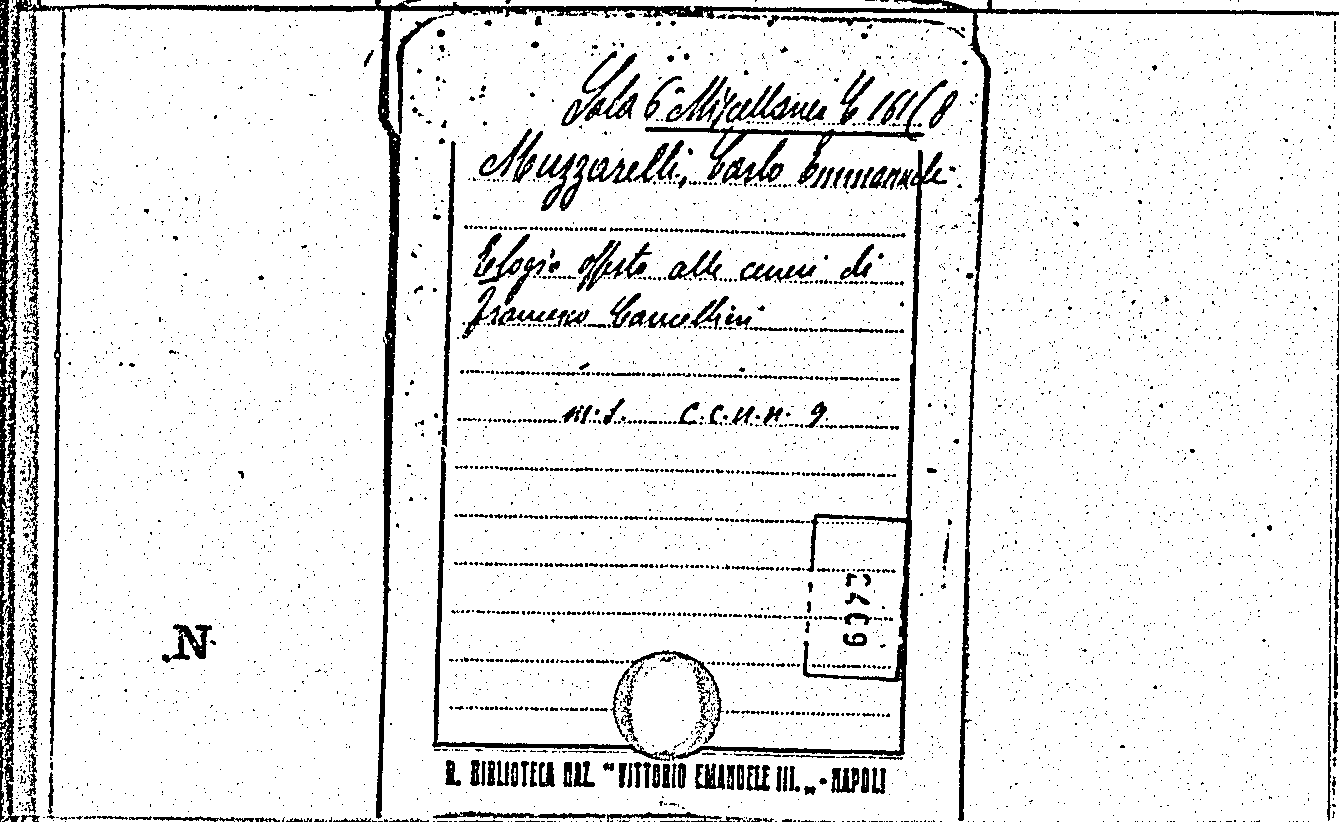 Sala 6ª Miscellanea C 161(8
Muzzarelli, Carlo Emmanuele.
Elogio offerto alle ceneri di
Francesco Cancellieri
m.s. C.C.n.n. 9
N
R. BIBLIOTECA NAZ. “VITTORIO EMANUELE III.„ - NAPOLI